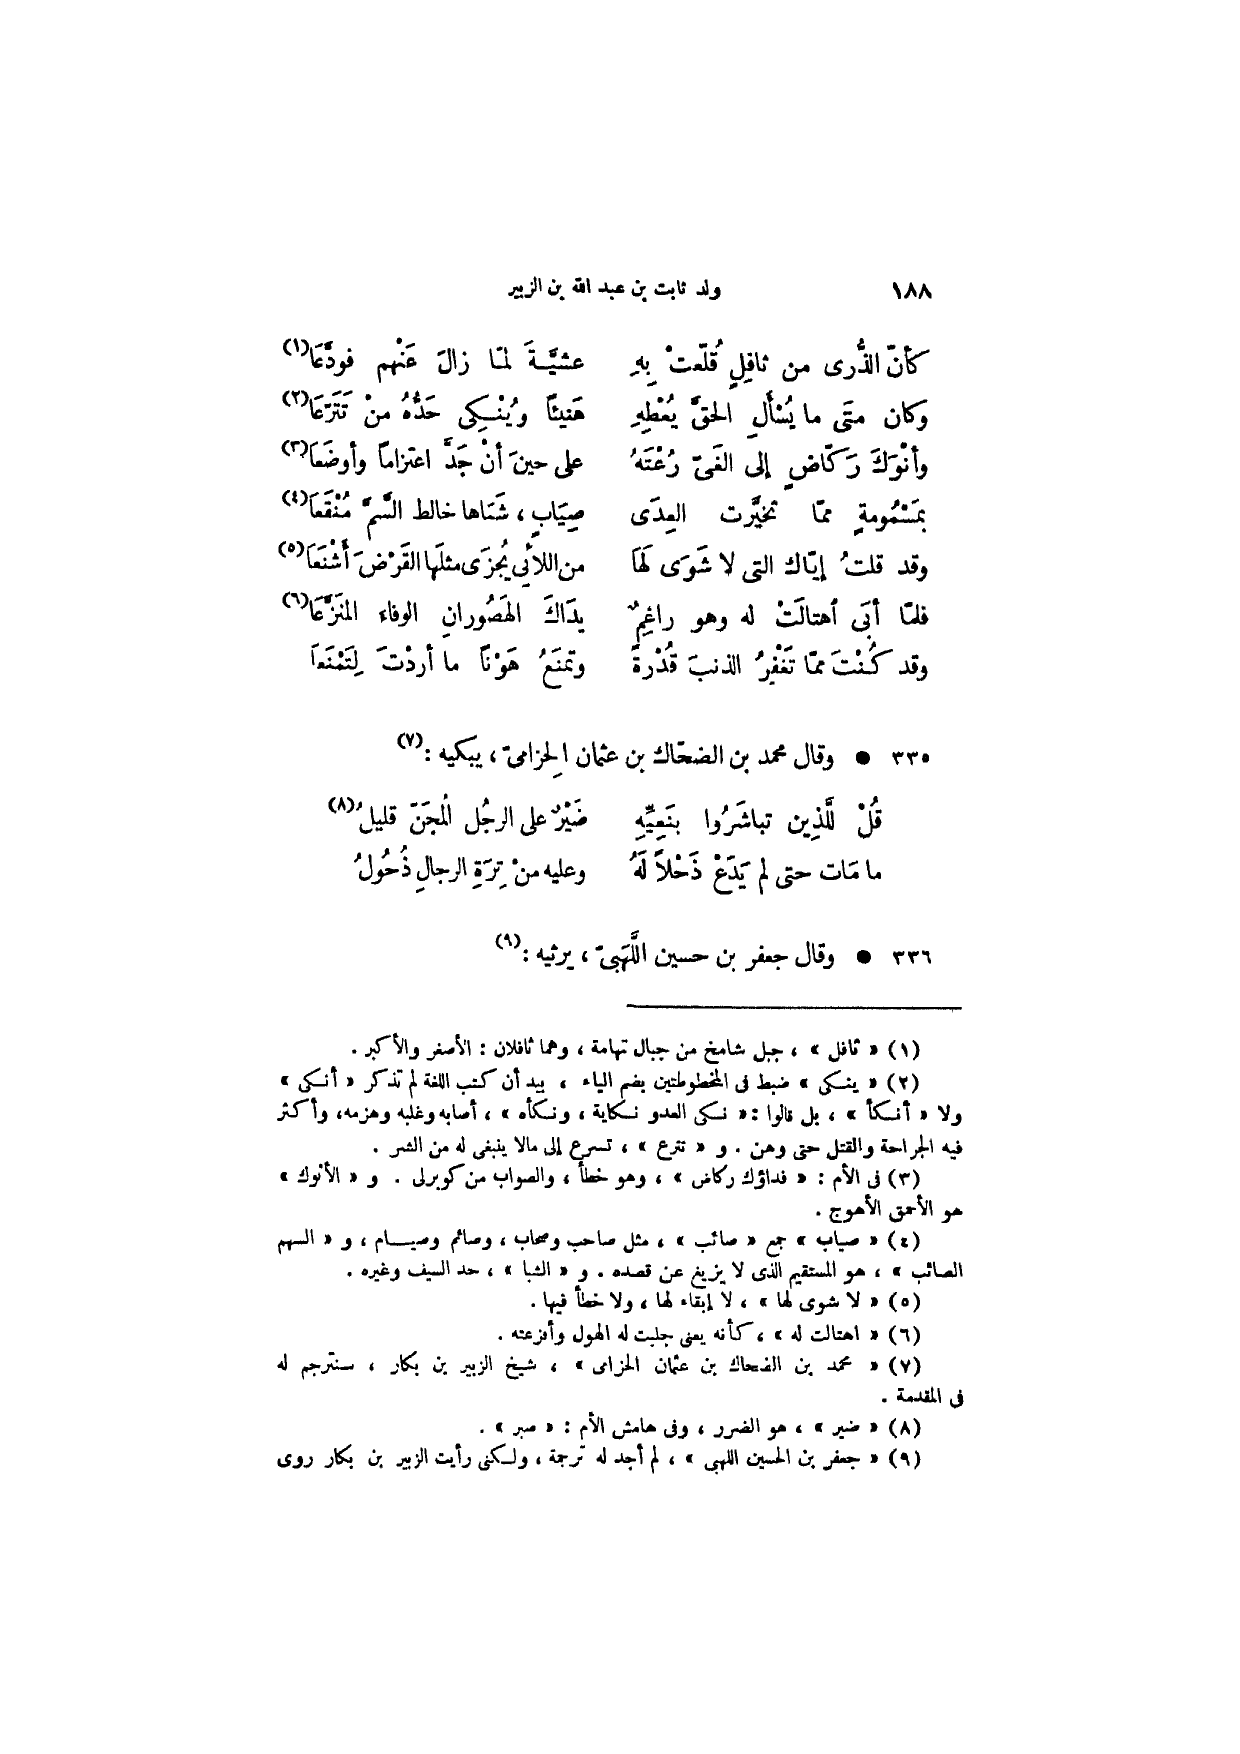 ١٨٨ ولد ثابت بن عبد الله بن الزبير
كأنّ الذُّرى من ثافلٍ قُلّعتْ بِهِ عشيَّةَ لمّا زالَ عَنْهم فودَّعَا(١)
وكان متَى ما يُسْأَلِ الحقَّ يُعْطِهِ هَنيئاً ويُنْكِى حَدُّهُ منْ تَتَرّعَا(٢)
وأنْوَكَ رَكّاضٍ إلى الغَىّ رُعْتَهُ على حينَ أنْ جَدَّ اعتزاماً وأوضَعَا(٣)
بمَسْمُومةٍ ممّا تخيَّرت العِدَى صِيَابٍ، شَبَاها خالط السَّمَّ مُنْقَعَا(٤)
وقد قلتُ إيّاك التى لا شَوَى لهَا من اللائى يُجزَى مثلَها القَرْضَ أشْنَعَا(٥)
فلمّا أبَى أهتالَتْ له وهو راغِمٌ يدَاكَ الهَصُورانِ الوفاء المنَزَّعَا(٦)
وقد كُنْتَ ممّا تَغْفِرُ الذنبَ قُدْرةً وتمنَعُ هَوْناً ما أردْتَ لِتَمْنَعاَ
٣٣٥ ● وقال محمد بن الضحّاك بن عثمان الحِزامىّ، يبكيه:(٧)
قُلْ للَّذِين تباشَرُوا بنَعِيِّهِ ضَيْرٌ على الرجُل الُمجَنّ قليلُ(٨)
ما مَات حتى لم يَدَعْ ذَحْلاً لَهُ وعليه منْ تِرَةِ الرجالِ ذُحُولُ
٣٣٦ ● وقال جعفر بن حسين اللَّهَبىّ، يرثيه:(٩)
(١) « ثافل »، جبل شامخ من جبال تهامة، وهما ثافلان: الأصغر والأكبر.
(٢) « ينكى » ضبط فى المخطوطتين بضم الياء، بيد أن كتب اللغة لم تذكر « أنكى »
ولا « أنكأ »، بل قالوا: « نكى العدو نكاية، ونكأه »، أصابه وغلبه وهزمه، وأكثر
فيه الجراحة والقتل حتى وهن. و « تترع »، تسرع إلى مالا ينبغى له من الشر.
(٣) فى الأم: « فداؤك ركاض »، وهو خطأ، والصواب من كوبرلى. و « الأنوك »
هو الأحمق الأهوج.
(٤) « صياب » جمع « صائب »، مثل صاحب وصحاب، وصائم وصيام، و « السهم
الصائب »، هو المستقيم الذى لا يزيغ عن قصده. و « الشبا »، حد السيف وغيره.
(٥) « لا شوى لها »، لا إبقاء لها، ولا خطأ فيها.
(٦) « اهتالت له »، كأنه يعنى جلبت له الهول وأفزعته.
(٧) « محمد بن الضحاك بن عثمان الحزامى »، شيخ الزبير بن بكار، سنترجم له
فى المقدمة.
(٨) « ضير »، هو الضرر، وفى هامش الأم: « صبر ».
(٩) « جعفر بن الحسين اللهبى »، لم أجد له ترجمة، ولكنى رأيت الزبير بن بكار روى